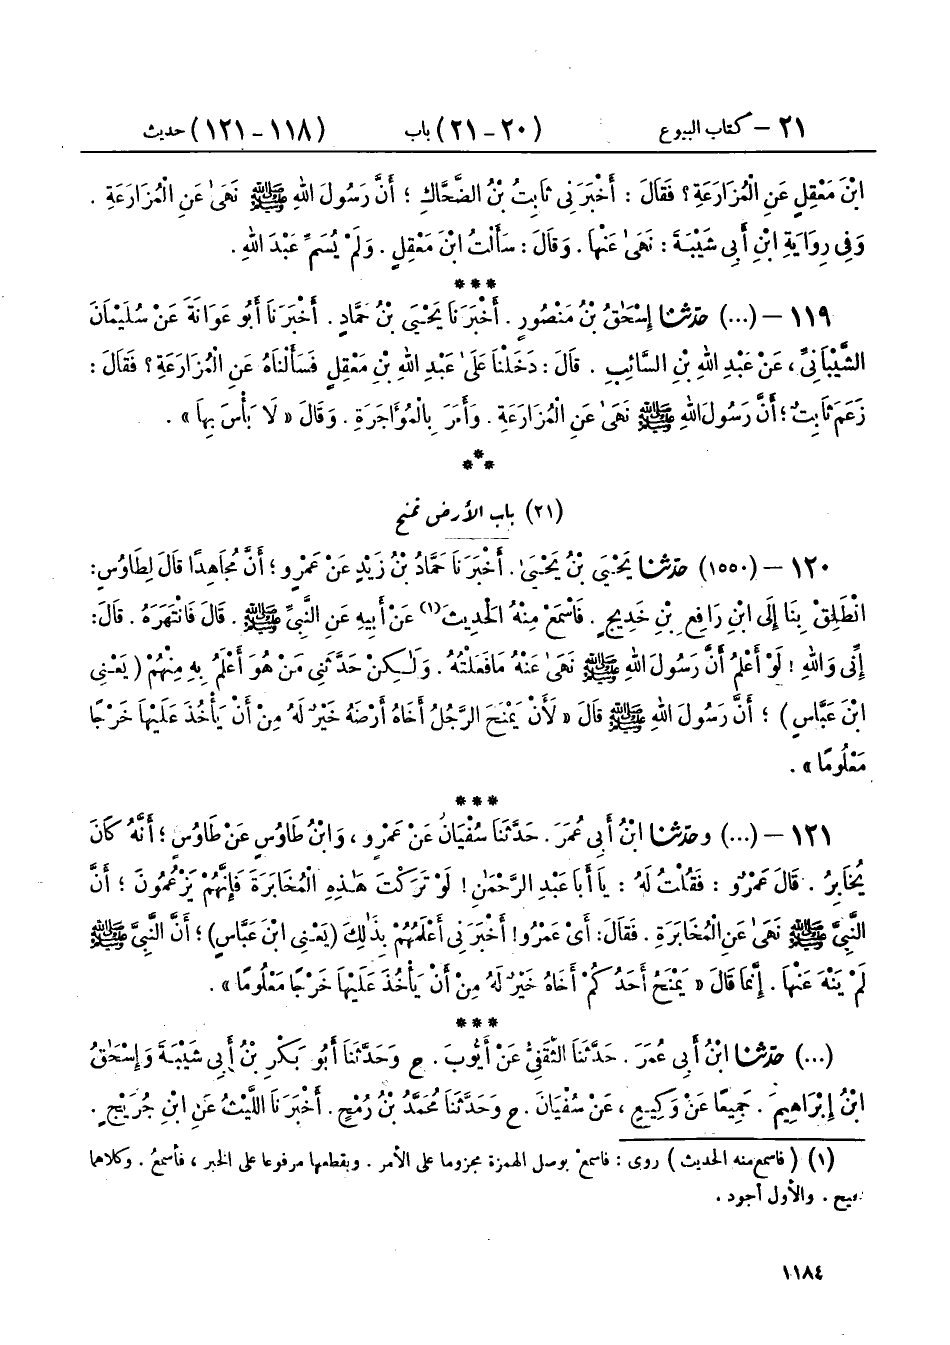 ٢١ – كتاب البيوع (٢٠ – ٢١) باب (١١٨ – ١٢١) حديث
ابْنَ مَعْقِلٍ عَنِ الْمُزَارَعَةِ ؟ فَقَالَ : أَخْبَرَنِي ثَابِتُ بْنُ الضَّحَّاكِ ؛ أَنَّ رَسُولَ اللهِ ﷺ نَهَىٰ عَنِ الْمُزَارَعَةِ .
وَفِي رِوَايَةِ ابْنِ أَبِي شَيْبَةَ : نَهَىٰ عَنْهَا . وَقَالَ : سَأَلْتُ ابْنَ مَعْقِلٍ . وَلَمْ يُسَمِّ عَبْدَ اللهِ .
***
١١٩ – (...) حدّثنا إِسْحَٰقُ بْنُ مَنْصُورٍ . أَخْبَرَنَا يَحْيَى بْنُ حَمَّادٍ . أَخْبَرَنَا أَبُو عَوَانَةَ عَنْ سُلَيْمَانَ
الشَّيْبَانِيِّ ، عَنْ عَبْدِ اللهِ بْنِ السَّائِبِ . قَالَ : دَخَلْنَا عَلَىٰ عَبْدِ اللهِ بْنِ مَعْقِلٍ فَسَأَلْنَاهُ عَنِ الْمُزَارَعَةِ ؟ فَقَالَ :
زَعَمَ ثَابِتٌ ؛ أَنَّ رَسُولَ اللهِ ﷺ نَهَىٰ عَنِ الْمُزَارَعَةِ . وَأَمَرَ بِالْمُؤَاجَرَةِ . وَقَالَ « لَا بَأْسَ بِهَا » .
***
(٢١) باب الأرض تمنح
١٢٠ – (١٥٥٠) حدّثنا يَحْيَى بْنُ يَحْيَىٰ . أَخْبَرَنَا حَمَّادُ بْنُ زَيْدٍ عَنْ عَمْرٍو ؛ أَنَّ مُجَاهِدًا قَالَ لِطَاوُسٍ :
انْطَلِقْ بِنَا إِلَى ابْنِ رَافِعِ بْنِ خَدِيجٍ . فَاسْمَعْ مِنْهُ الْحَدِيثَ (١) عَنْ أَبِيهِ عَنِ النَّبِيِّ ﷺ . قَالَ فَانْتَهَرَهُ . قَالَ :
إِنِّي وَاللهِ ! لَوْ أَعْلَمُ أَنَّ رَسُولَ اللهِ ﷺ نَهَىٰ عَنْهُ مَا فَعَلْتُهُ . وَلَٰكِنْ حَدَّثَنِي مَنْ هُوَ أَعْلَمُ بِهِ مِنْهُمْ ( يَعْنِي
ابْنَ عَبَّاسٍ ) ؛ أَنَّ رَسُولَ اللهِ ﷺ قَالَ « لَأَنْ يَمْنَحَ الرَّجُلُ أَخَاهُ أَرْضَهُ خَيْرٌ لَهُ مِنْ أَنْ يَأْخُذَ عَلَيْهَا خَرْجًا
مَعْلُومًا » .
***
١٢١ – (...) وحدّثنا ابْنُ أَبِي عُمَرَ . حَدَّثَنَا سُفْيَانُ عَنْ عَمْرٍو ، وَابْنُ طَاوُسٍ عَنْ طَاوُسٍ ؛ أَنَّهُ كَانَ
يُخَابِرُ . قَالَ عَمْرٌو : فَقُلْتُ لَهُ : يَا أَبَا عَبْدِ الرَّحْمَٰنِ ! لَوْ تَرَكْتَ هَٰذِهِ الْمُخَابَرَةَ فَإِنَّهُمْ يَزْعُمُونَ ؛ أَنَّ
النَّبِيَّ ﷺ نَهَىٰ عَنِ الْمُخَابَرَةِ . فَقَالَ : أَيْ عَمْرُو ! أَخْبَرَنِي أَعْلَمُهُمْ بِذَٰلِكَ ( يَعْنِي ابْنَ عَبَّاسٍ ) ؛ أَنَّ النَّبِيَّ ﷺ
لَمْ يَنْهَ عَنْهَا . إِنَّمَا قَالَ « يَمْنَحُ أَحَدُكُمْ أَخَاهُ خَيْرٌ لَهُ مِنْ أَنْ يَأْخُذَ عَلَيْهَا خَرْجًا مَعْلُومًا » .
***
(...) حدّثنا ابْنُ أَبِي عُمَرَ . حَدَّثَنَا الثَّقَفِيُّ عَنْ أَيُّوبَ . ح وَحَدَّثَنَا أَبُو بَكْرِ بْنُ أَبِي شَيْبَةَ وَإِسْحَٰقُ
ابْنُ إِبْرَاهِيمَ . جَمِيعًا عَنْ وَكِيعٍ ، عَنْ سُفْيَانَ . ح وَحَدَّثَنَا مُحَمَّدُ بْنُ رُمْحٍ . أَخْبَرَنَا اللَّيْثُ عَنِ ابْنِ جُرَيْجٍ .
(١) ( فاسمع منه الحديث ) روى : فاسمعْ بوصل الهمزة مجزوما على الأمر . وبقطعها مرفوعا على الخبر ، فأسمعُ . وكلاهما
صحيح . والأول أجود .
١١٨٤